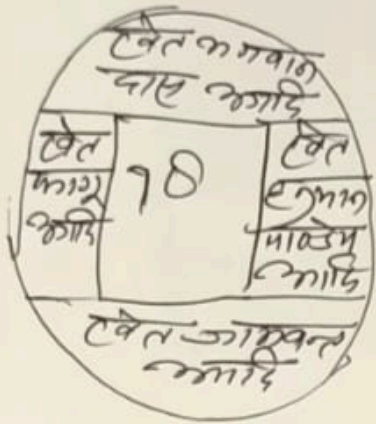 खेत भगवान
दास आदि
खेत
फागू
आदि
१८
खेत
हनुमान
पाण्डेय
आदि
खेत जामवन्त
आदि